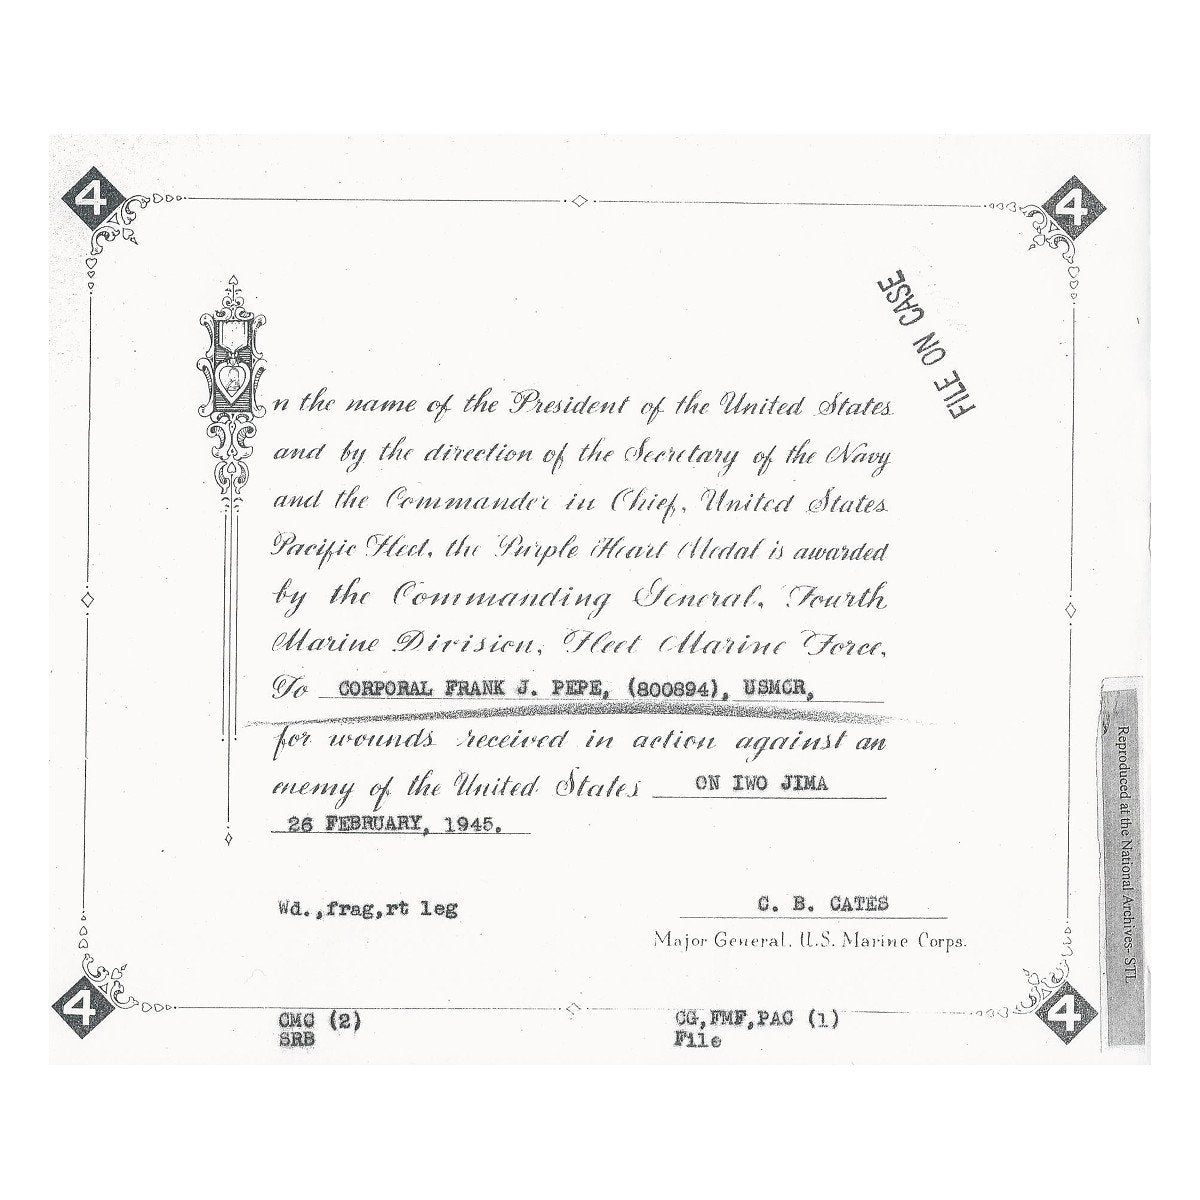 4
4
FILE ON CASE.
In the name of the President of the United States
and by the direction of the Secretary of the Navy
and the Commander in Chief, United States
Pacific Fleet, the Purple Heart Medal is awarded
by the Commanding General, Fourth
Marine Division, Fleet Marine Force,
To CORPORAL FRANK J. PEPE, (800894), USMCR,
for wounds received in action against an
enemy of the United States ON IWO JIMA
26 FEBRUARY, 1945.
Wd.,frag,rt leg
C. B. CATES
Major General, U.S. Marine Corps.
4
4
CMC (2)
SRB
CG,FMF,PAC (1)
File
Reproduced at the National Archives- STL